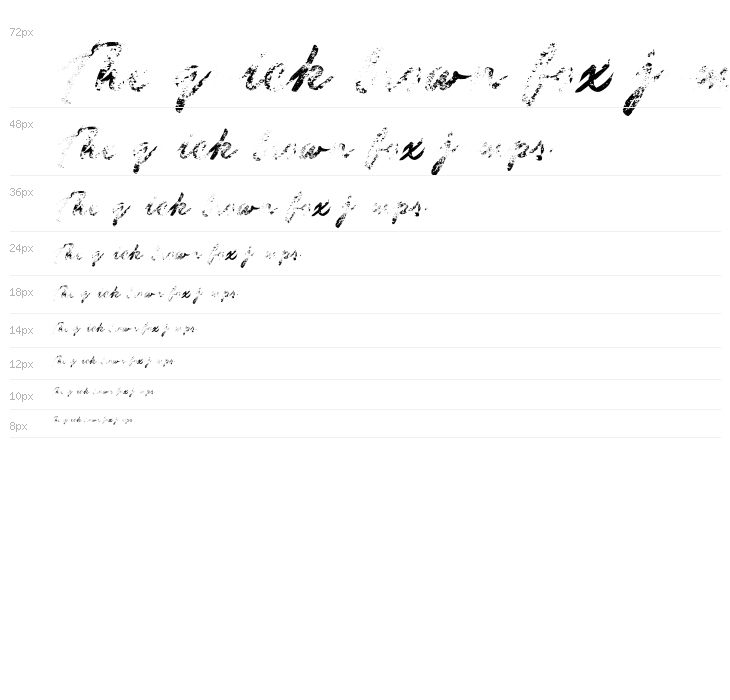 72px The q ick brown fox j m
48px The q ick brown fox j mps.
36px The q ick brown fox j mps.
24px The q ick brown fox j mps.
18px The q ick brown fox j mps.
14px The q ick brown fox j mps.
12px The q ick brown fox j mps.
10px The q ick brown fox j mps.
8px The q ick brown fox j mps.